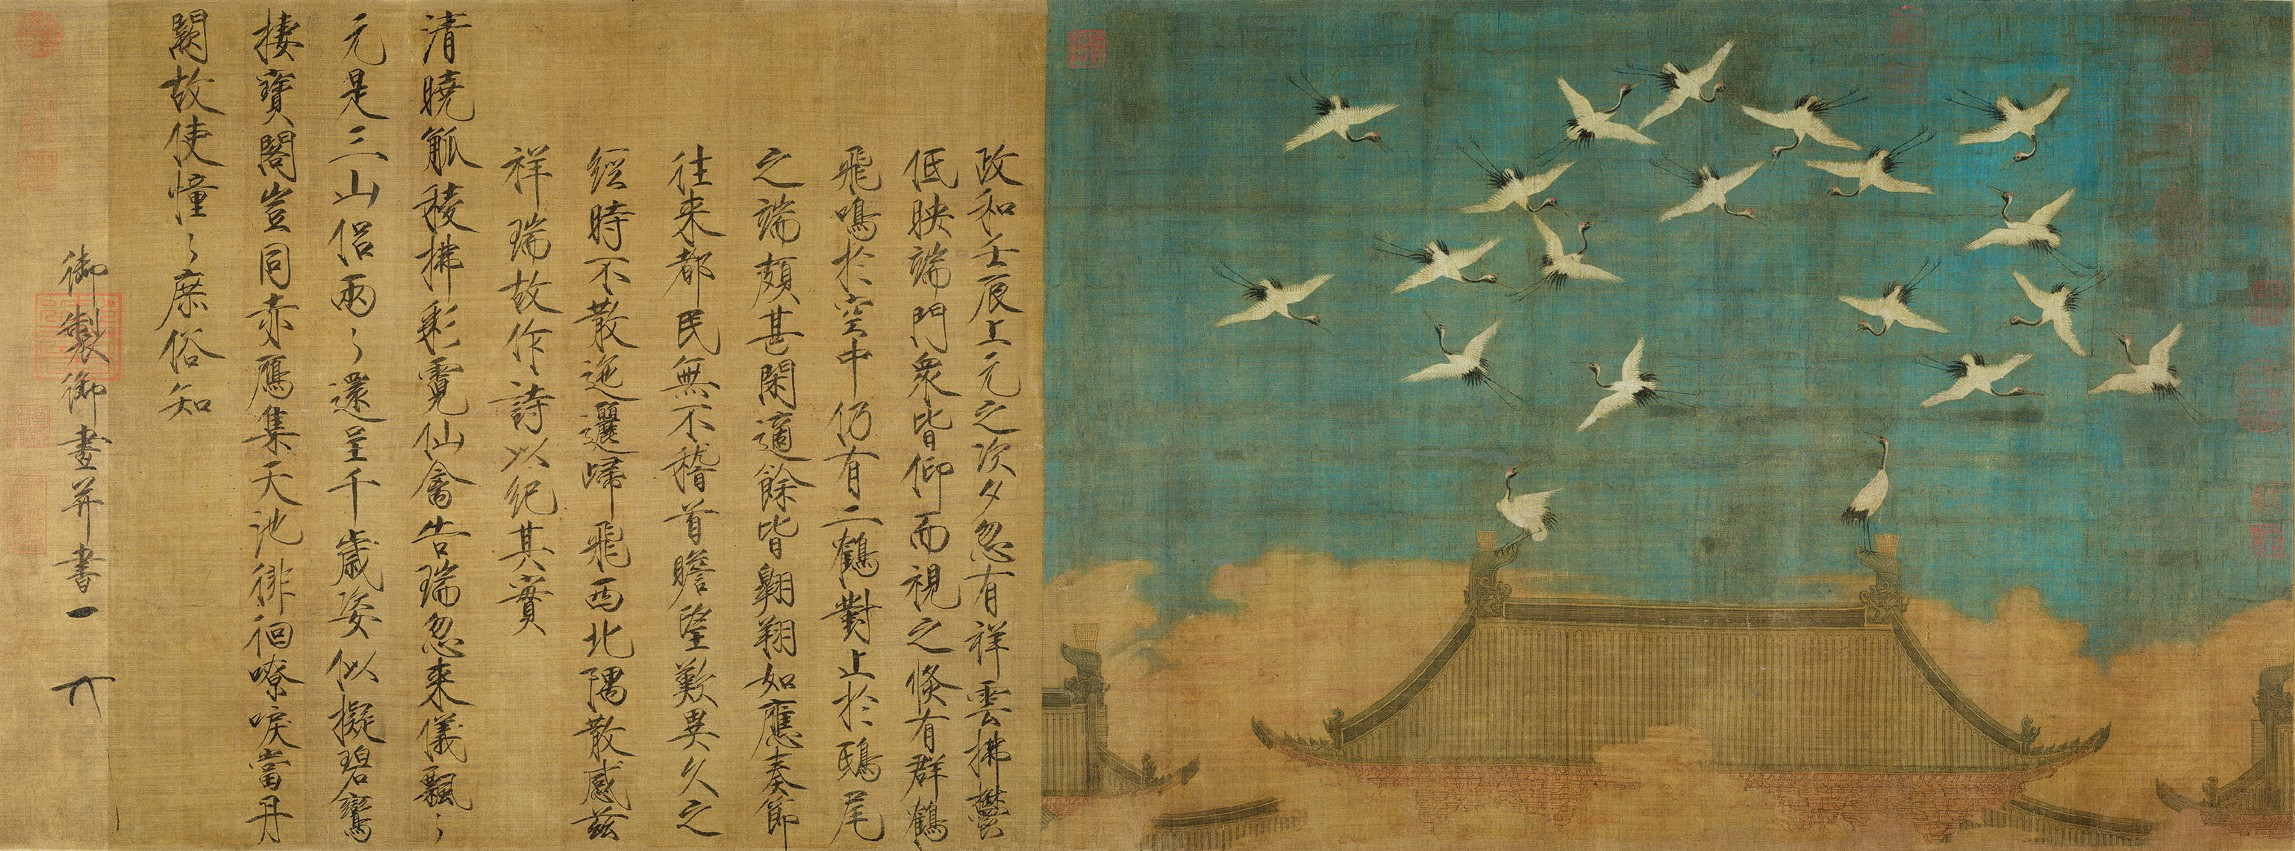 政和壬辰上元之次夕忽有祥雲拂鬱
低映端門衆皆仰而視之倏有群鶴
飛鳴於空中仍有二鶴對止於鴟尾
之端頗甚閑適餘皆翺翔如應奏節
往来都民無不稽首瞻望歎異久之
經時不散迤邐歸飛西北隅散感兹
祥瑞故作詩以紀其實
清曉觚稜拂彩霓仙禽告瑞忽来儀飄〻
元是三山侣兩〻還呈千歲姿似擬碧鸞
棲寶閣豈同赤鴈集天池徘徊嘹唳當丹
闕故使憧〻庶俗知
御製御畫并書一